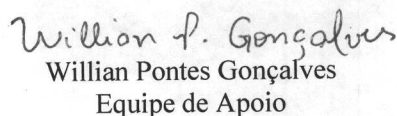 Willian P. Gonçalves
Willian Pontes Gonçalves
Equipe de Apoio